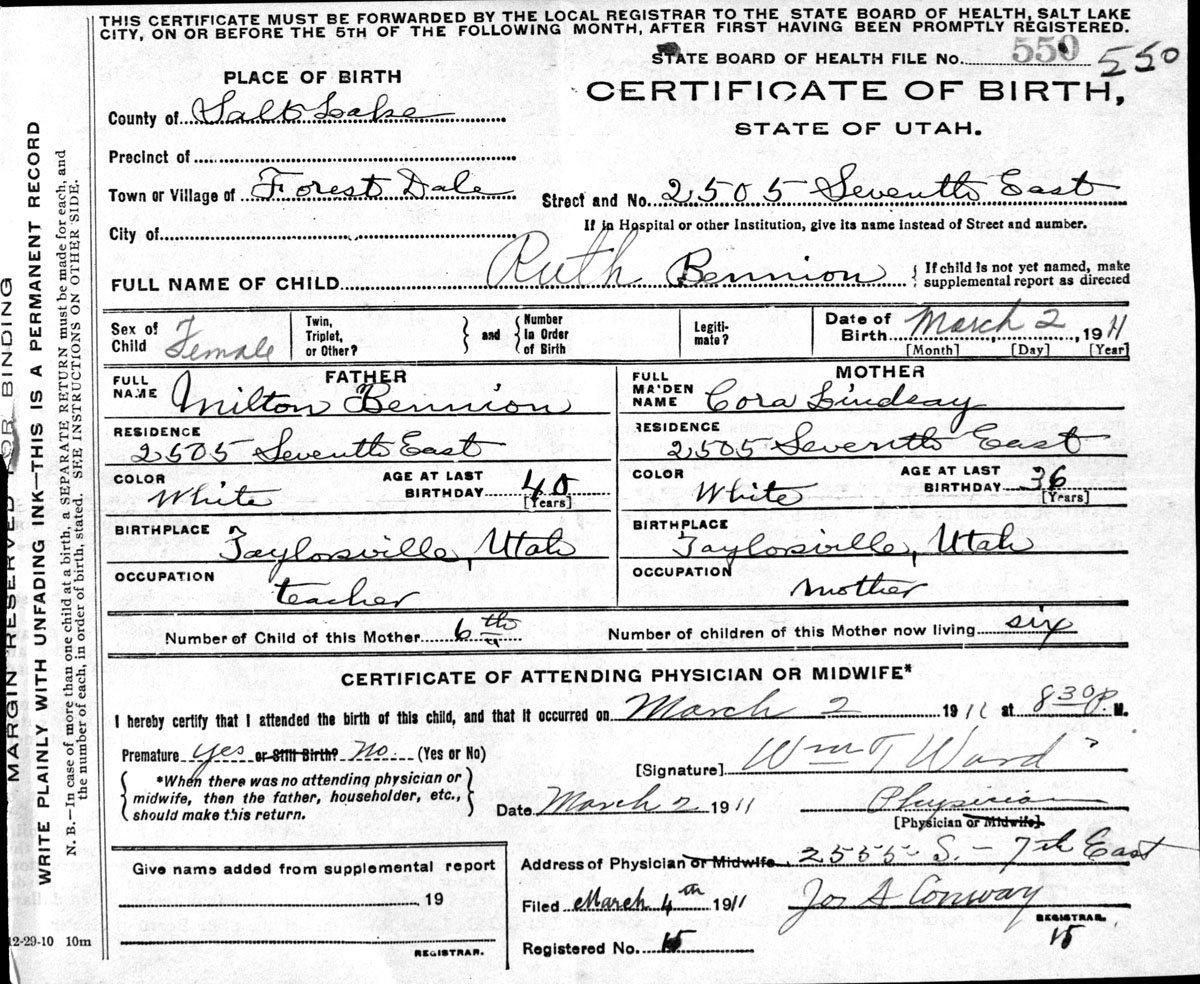 THIS CERTIFICATE MUST BE FORWARDED BY THE LOCAL REGISTRAR TO THE STATE BOARD OF HEALTH, SALT LAKE
CITY, ON OR BEFORE THE 5TH OF THE FOLLOWING MONTH, AFTER FIRST HAVING BEEN PROMPTLY REGISTERED.
STATE BOARD OF HEALTH FILE No. 550 550
PLACE OF BIRTH
CERTIFICATE OF BIRTH,
STATE OF UTAH.
County of Salt Lake
Precinct of
Town or Village of Forest Dale
Street and No. 2505 Seventh East
City of
If in Hospital or other Institution, give its name instead of Street and number.
FULL NAME OF CHILD Ruth Bennion { If child is not yet named, make
supplemental report as directed
Sex of
Child Female
Twin,
Triplet,
or Other?
} and {
Number
in Order
of Birth
Legiti-
mate?
Date of
Birth March 2, 1911
[Month] [Day] [Year]
FATHER
FULL
NAME Milton Bennion
RESIDENCE
2505 Seventh East
COLOR White
AGE AT LAST
BIRTHDAY 40
[Years]
BIRTHPLACE
Taylorsville, Utah
OCCUPATION
teacher
MOTHER
FULL
MAIDEN
NAME Cora Lindsay
RESIDENCE
2505 Seventh East
COLOR White
AGE AT LAST
BIRTHDAY 36
[Years]
BIRTHPLACE
Taylorsville, Utah
OCCUPATION
mother
Number of Child of this Mother 6th
Number of children of this Mother now living six
CERTIFICATE OF ATTENDING PHYSICIAN OR MIDWIFE*
I hereby certify that I attended the birth of this child, and that it occurred on March 2 1911 at 830 p. M.
Premature yes or Still Birth? No. (Yes or No)
[Signature] Wm T Ward
{ *When there was no attending physician or
midwife, then the father, householder, etc.,
should make this return. }
Date March 2 1911
Physician
[Physician or Midwife].
Address of Physician or Midwife 2555 S. - 7th East
Give name added from supplemental report
19
REGISTRAR.
Filed March 4th 1911
Jos A Conway
REGISTRAR.
Registered No. 15
15
12-29-10 10m
MARGIN RESERVED FOR BINDING
WRITE PLAINLY WITH UNFADING INK—THIS IS A PERMANENT RECORD
N. B.—In case of more than one child at a birth, a SEPARATE RETURN must be made for each, and
the number of each, in order of birth, stated. SEE INSTRUCTIONS ON OTHER SIDE.